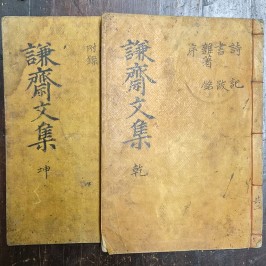 謙齋文集
乾
詩 記
書 跋
雜著 銘
序
謙齋文集
坤
附錄